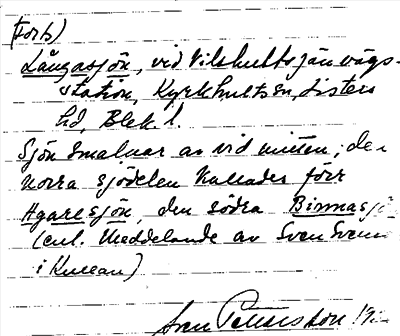 (Forts)
Långasjön, vid Vilshults järnvägs-
station, Kyrkhults sn, Listers
hd, Blek. l.
Sjön smalnar av vid mitten; de
norra sjödelen kallades förr
Agaresjön, den södra Binnasj
(enl. Meddelande av Sven Sven
i Kullan)
Sven Pettersson 19